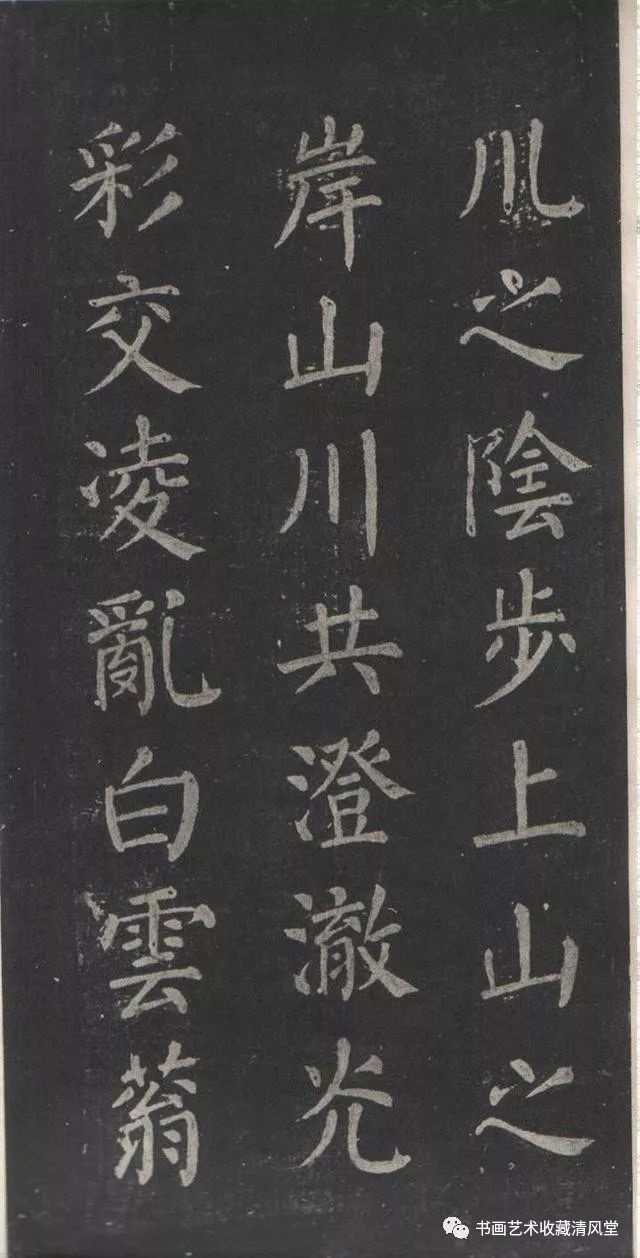 川之陰步上山之
岸山川共澄澈光
彩交凌亂白雲蓊
书画艺术收藏清风堂